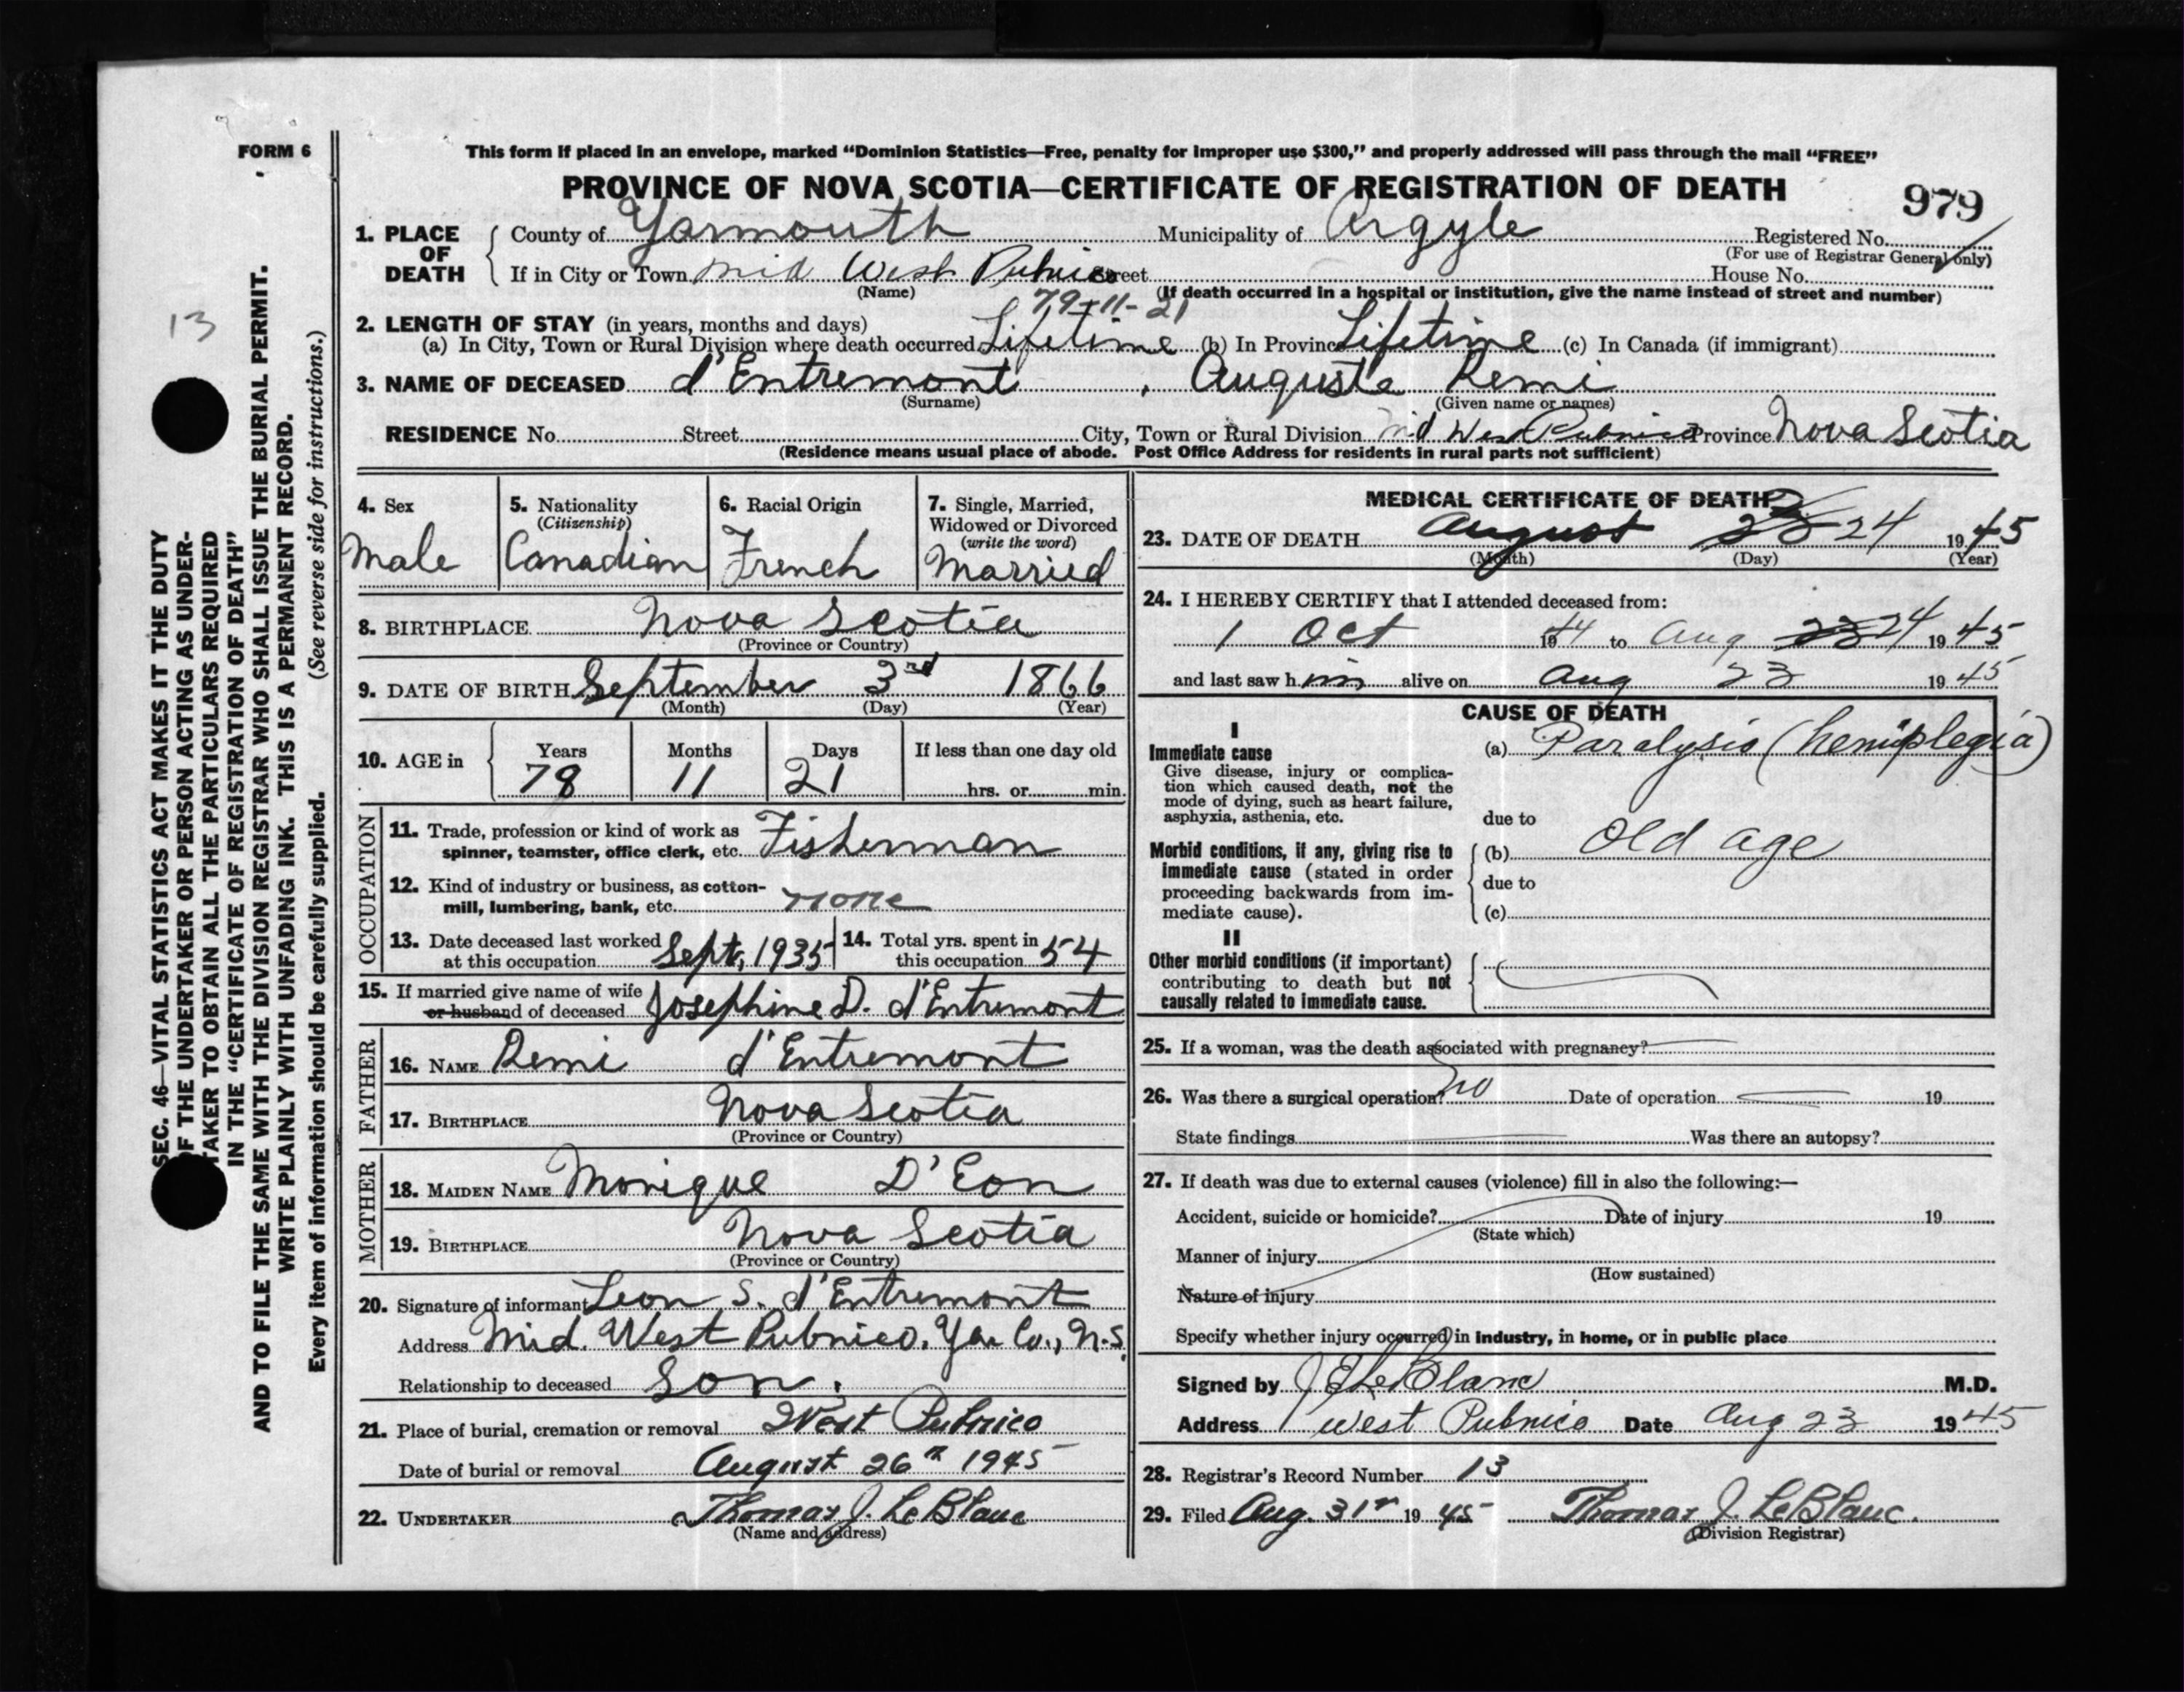 FORM 6
This form if placed in an envelope, marked “Dominion Statistics—Free, penalty for improper use $300,” and properly addressed will pass through the mail “FREE”
PROVINCE OF NOVA SCOTIA—CERTIFICATE OF REGISTRATION OF DEATH
979
1. PLACE OF DEATH County of Yarmouth Municipality of Argyle Registered No.
(For use of Registrar General only)
If in City or Town Mid West Pubnico Street House No.
(Name) (If death occurred in a hospital or institution, give the name instead of street and number)
79-11-21
2. LENGTH OF STAY (in years, months and days)
(a) In City, Town or Rural Division where death occurred Lifetime (b) In Province Lifetime (c) In Canada (if immigrant)
3. NAME OF DECEASED d'Entremont, Auguste Remi
(Surname) (Given name or names)
RESIDENCE No. Street City, Town or Rural Division Mid West Pubnico Province Nova Scotia
(Residence means usual place of abode. Post Office Address for residents in rural parts not sufficient)
4. Sex
Male
5. Nationality
(Citizenship)
Canadian
6. Racial Origin
French
7. Single, Married,
Widowed or Divorced
(write the word)
Married
8. BIRTHPLACE Nova Scotia
(Province or Country)
9. DATE OF BIRTH September 3rd 1866
(Month) (Day) (Year)
10. AGE in Years Months Days If less than one day old
78 11 21 hrs. or min.
OCCUPATION
11. Trade, profession or kind of work as
spinner, teamster, office clerk, etc. Fisherman
12. Kind of industry or business, as cotton-
mill, lumbering, bank, etc. none
13. Date deceased last worked
at this occupation Sept, 1935
14. Total yrs. spent in
this occupation 54
15. If married give name of wife
or husband of deceased Josephine D. d'Entremont
FATHER
16. NAME Remi d'Entremont
17. BIRTHPLACE Nova Scotia
(Province or Country)
MOTHER
18. MAIDEN NAME Monique D'Eon
19. BIRTHPLACE Nova Scotia
(Province or Country)
20. Signature of informant Leon S. d'Entremont
Address Mid. West Pubnico, Yar Co., N.S.
Relationship to deceased Son.
21. Place of burial, cremation or removal West Pubnico
Date of burial or removal August 26th 1945
22. UNDERTAKER Thomas J. LeBlanc
(Name and address)
MEDICAL CERTIFICATE OF DEATH
23. DATE OF DEATH August 23 24 1945
(Month) (Day) (Year)
24. I HEREBY CERTIFY that I attended deceased from:
1 Oct 1944 to Aug 23 24 1945
and last saw him alive on Aug 23 1945
CAUSE OF DEATH
I
Immediate cause
Give disease, injury or complica-
tion which caused death, not the
mode of dying, such as heart failure,
asphyxia, asthenia, etc.
(a) Paralysis (hemiplegia)
due to
Morbid conditions, if any, giving rise to
immediate cause (stated in order
proceeding backwards from im-
mediate cause).
(b) Old age
due to
(c)
II
Other morbid conditions (if important)
contributing to death but not
causally related to immediate cause.
25. If a woman, was the death associated with pregnancy?
26. Was there a surgical operation? no Date of operation 19
State findings Was there an autopsy?
27. If death was due to external causes (violence) fill in also the following:—
Accident, suicide or homicide? Date of injury 19
(State which)
Manner of injury
(How sustained)
Nature of injury
Specify whether injury occurred in industry, in home, or in public place
Signed by J E LeBlanc M.D.
Address West Pubnico Date Aug 23 1945
28. Registrar's Record Number 13
29. Filed Aug. 31st 1945 Thomas J. LeBlanc.
(Division Registrar)
13
SEC. 46—VITAL STATISTICS ACT MAKES IT THE DUTY
OF THE UNDERTAKER OR PERSON ACTING AS UNDER-
TAKER TO OBTAIN ALL THE PARTICULARS REQUIRED
IN THE “CERTIFICATE OF REGISTRATION OF DEATH”
AND TO FILE THE SAME WITH THE DIVISION REGISTRAR WHO SHALL ISSUE THE BURIAL PERMIT.
WRITE PLAINLY WITH UNFADING INK. THIS IS A PERMANENT RECORD.
Every item of information should be carefully supplied. (See reverse side for instructions.)